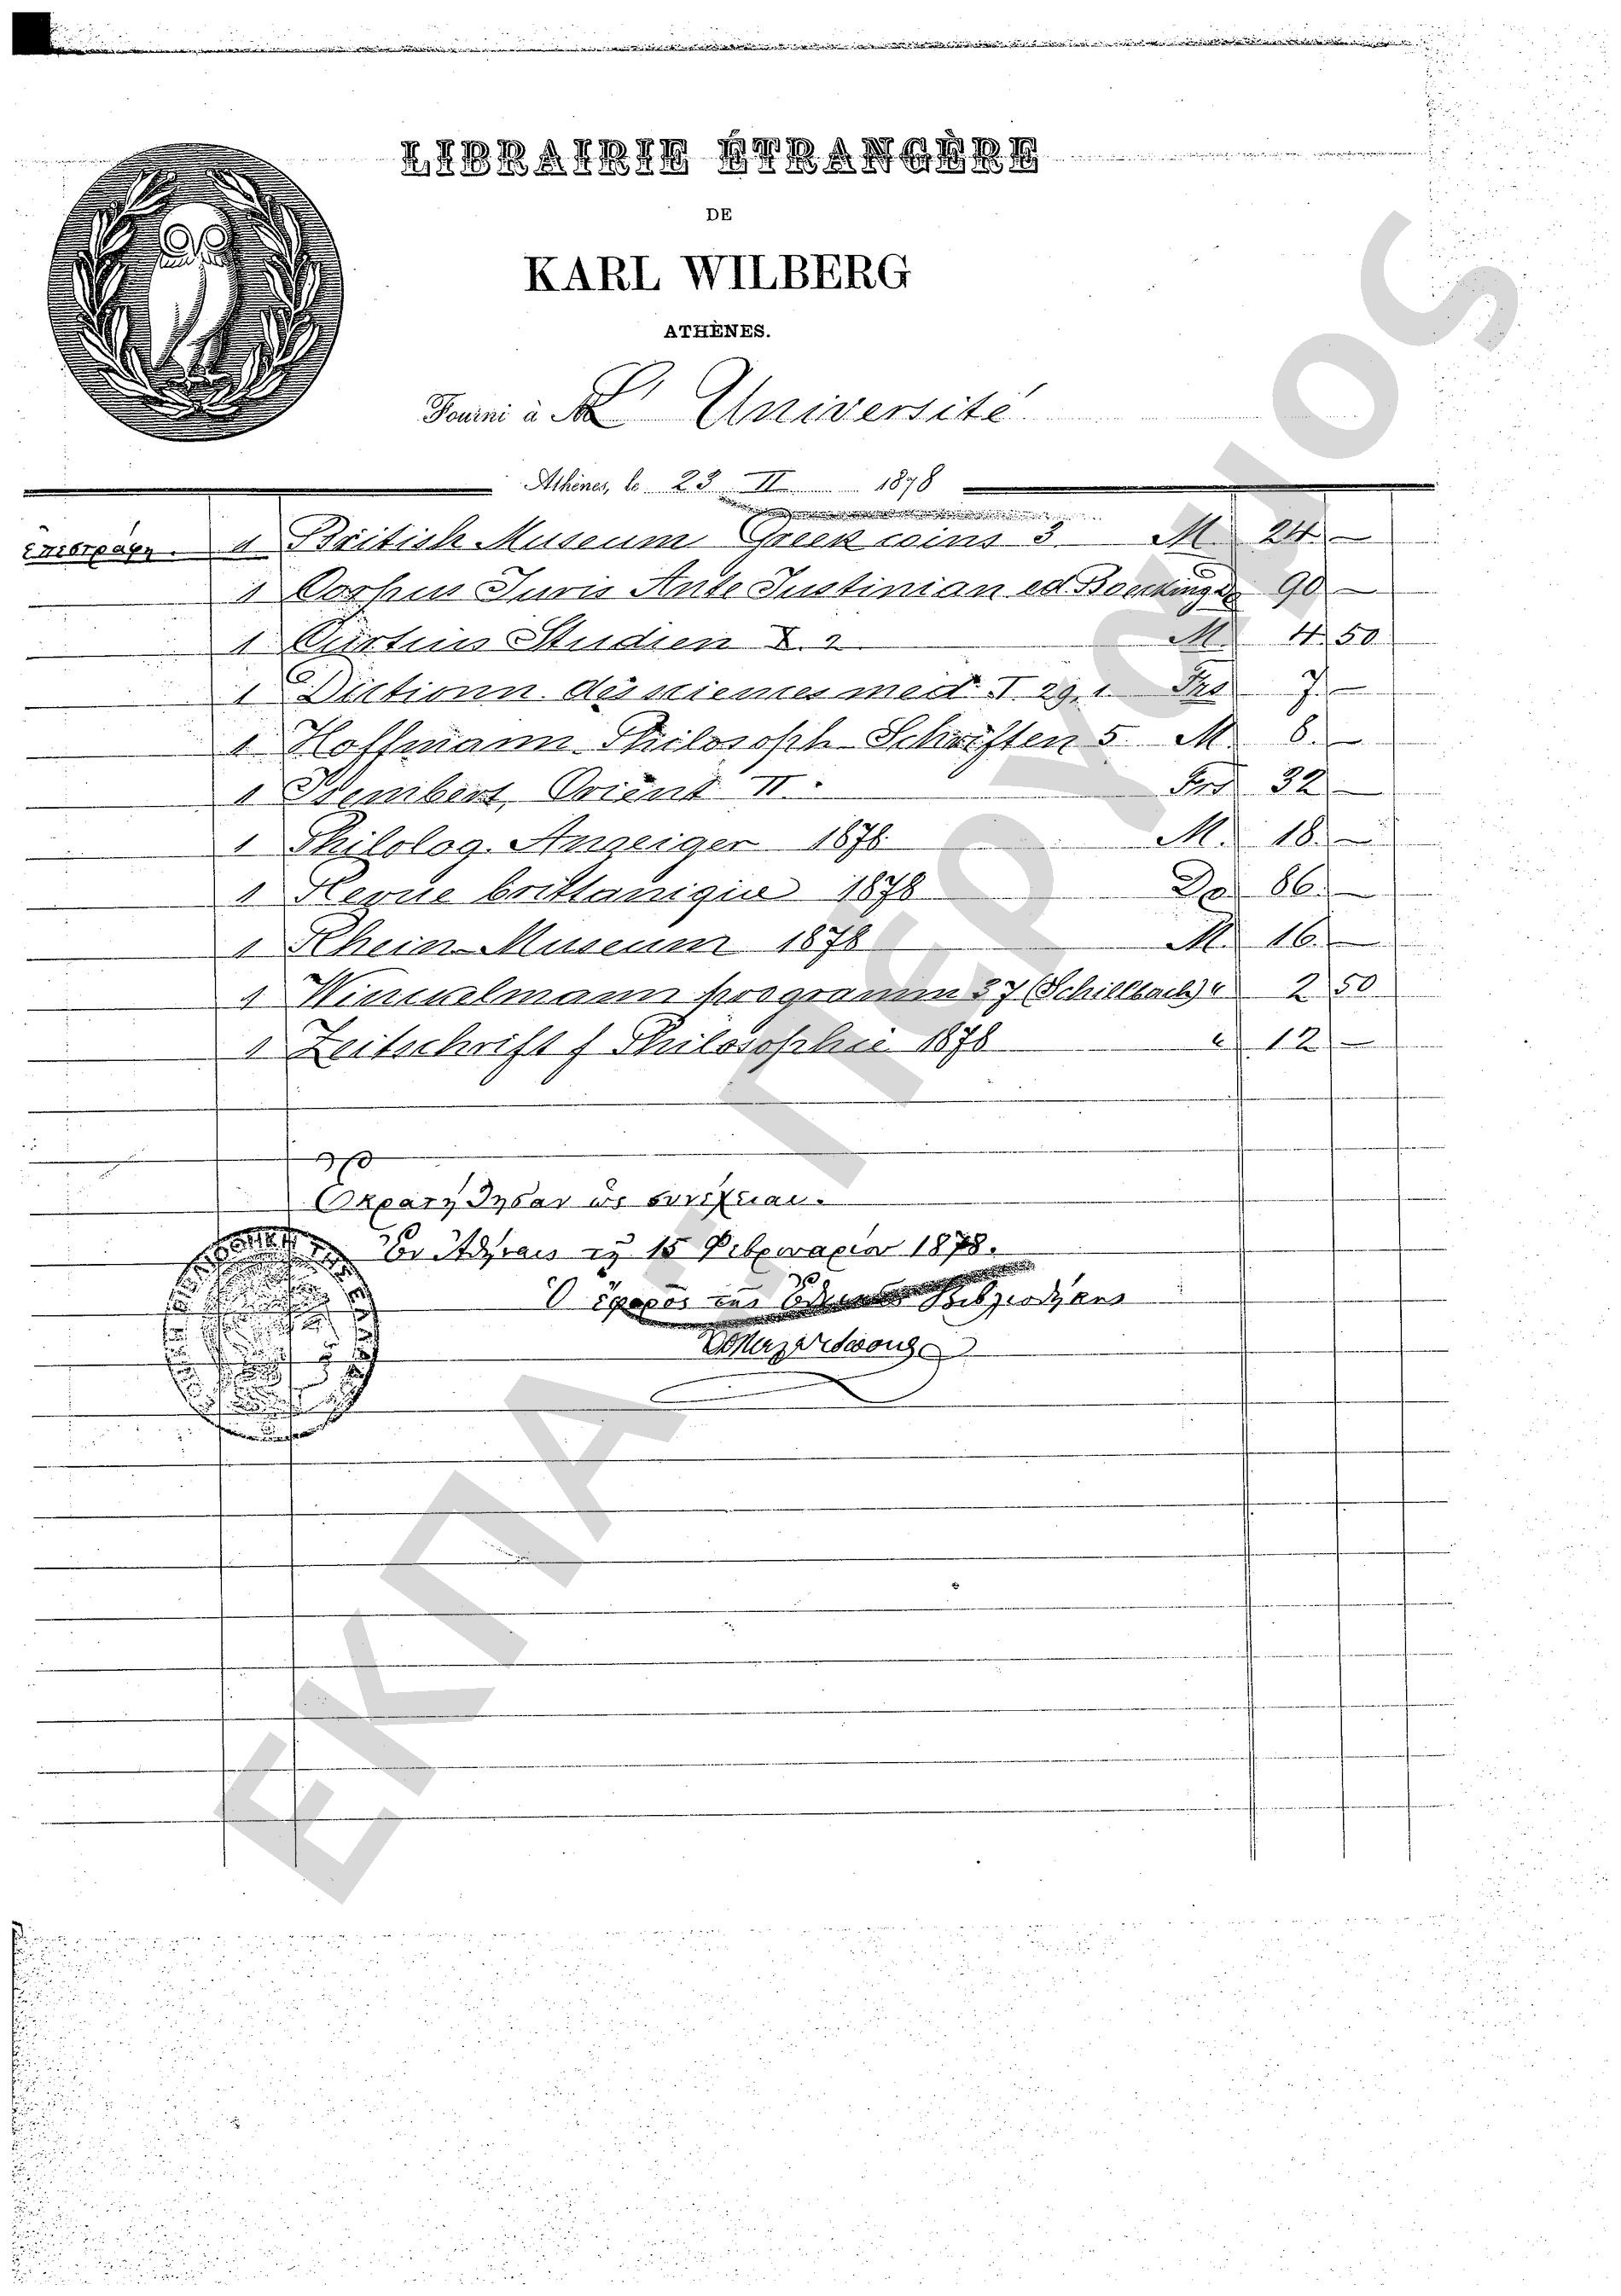 LIBRAIRIE ÉTRANGÈRE
DE
KARL WILBERG
ATHÈNES.
Fourni à L'Université
Athènes, le 23 II 1878
1 British Museum Greek coins 3 M. 24 —
1 Corpus Juris Ante Justinian ed. Boecking Do 90 —
1 Curtius Studien X. 2 M. 4 50
1 Dictionn. des sciences med. T 29, 1. Frs 7. —
1 Hoffmann Philosoph Schriften 5 M 6. —
1 Isembert, Orient II. Frs 32 —
1 Philolog. Anzeiger 1878 M. 18. —
1 Revue brittanique 1878 Do 66. —
1 Rhein Museum 1878 M. 16. —
1 Winckelmann programm 37 (Schillbach) " 2 50
1 Zeitschrift f Philosophie 1878 " 12 —
Ἐν Ἀθήναις τῇ 15 Φεβρουαρίου 1878.
Ὁ ἔφορος τῆς Βιβλιοθήκης
ΕΚΠΑ - ΠΕΡΓΑΜΟΣ